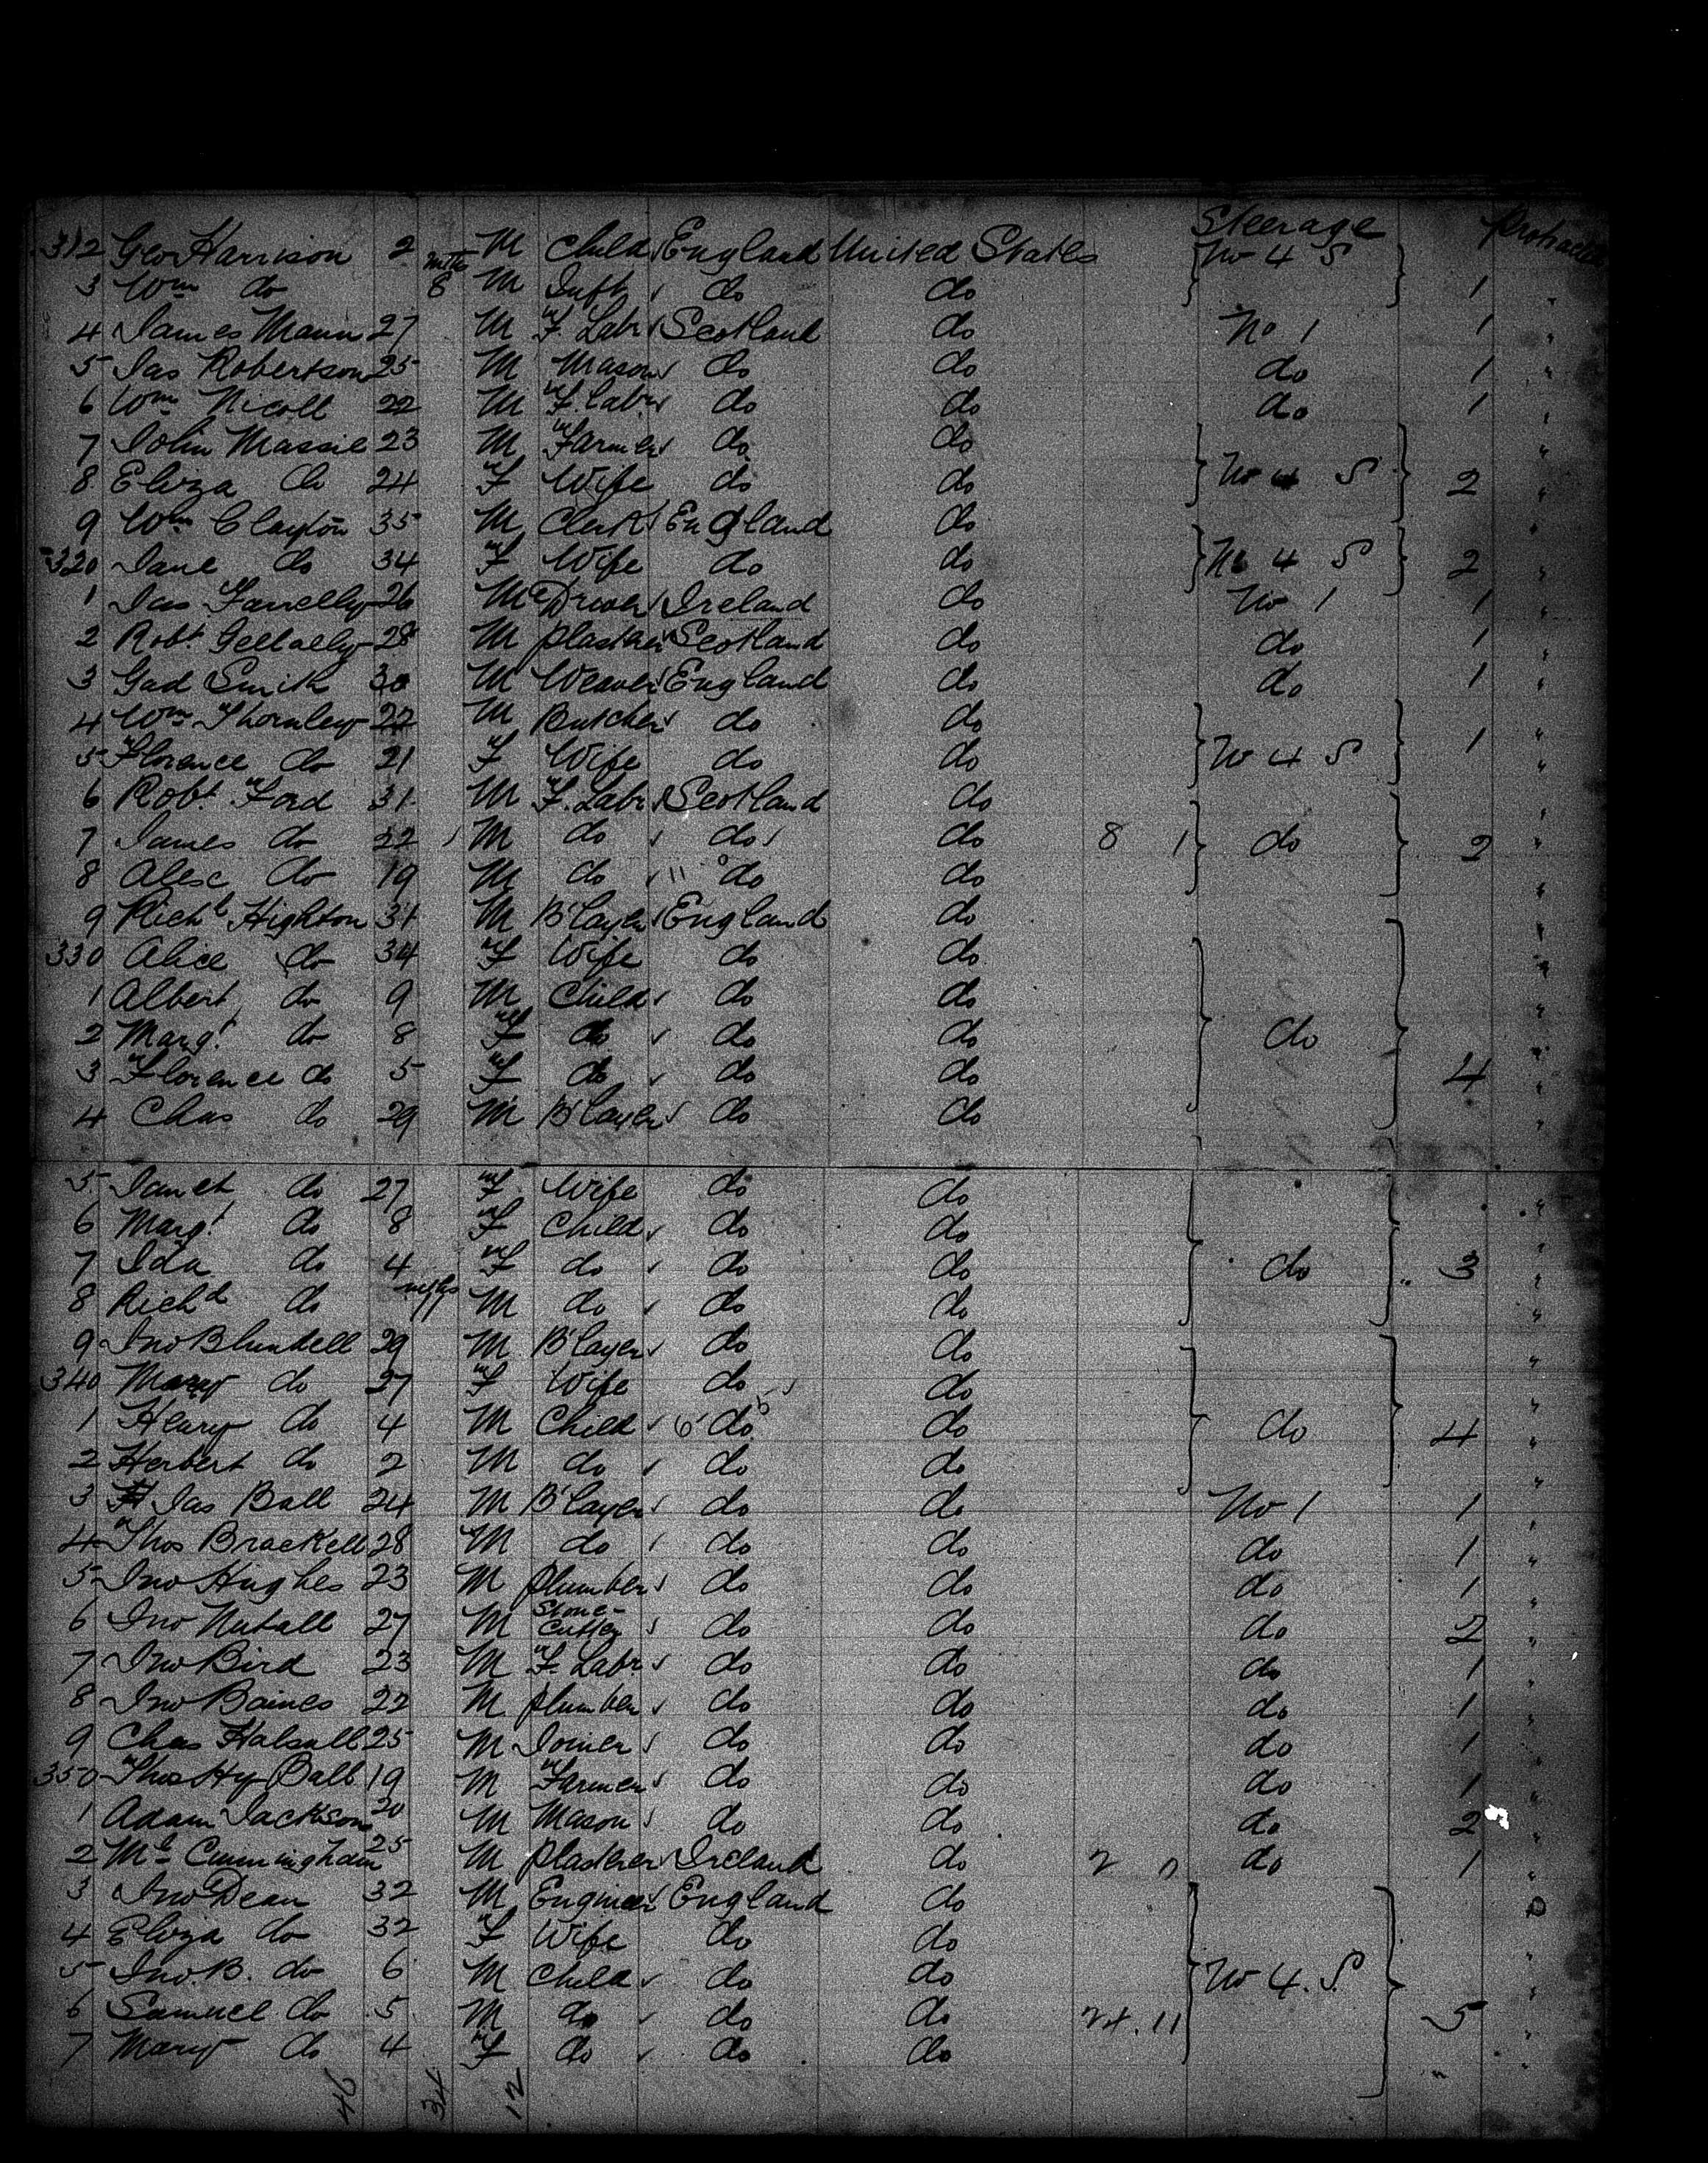 Steerage
312 Geo Harrison 2 M Child England United States No 4 S
3 Wm do mths 8 M Inft do do 1
4 James Mann 27 M F. Labr Scotland do No 1 1
5 Jas Robertson 25 M Mason do do do 1
6 Wm Nicoll 22 M F. Labr do do do 1
7 John Massie 23 M Farmer do do
8 Eliza do 24 F Wife do do No 4 S 2
9 Wm Clayton 35 M Clerk England do
320 Jane do 34 F Wife do do No 4 S 2
1 Jas Farrelly 26 M Driver Ireland do No 1 1
2 Robt 28 M Plasterer Scotland do do 1
3 Gad Smith 30 M Weaver England do do 1
4 Wm Thornley 22 M Butcher do do
5 Florence do 21 F Wife do do No 4 S 1
6 Robt Ford 31 M F. Labr Scotland do
7 James do 22 M do do do 8 1 do 2
8 Alex do 19 M do " do do
9 Richd Highton 31 M B'layer England do
330 Alice do 34 F Wife do do
1 Albert do 9 M Child do do
2 Margt do 8 F do do do do
3 Florence do 5 F do do do 4
4 Chas do 29 M B'layer do do
5 Janet do 27 F Wife do do
6 Margt do 8 F Child do do
7 Ida do 4 F do do do do 3
8 Richd do mths 11 M do do do
9 Jno Blundell 29 M B'layer do do
340 Mary do 27 F Wife do do
1 Henry do 4 M Child do do do 4
2 Herbert do 2 M do do do
3 Jas Ball 24 M B'layer do do No 1 1
4 Thos Brackell 28 M do do do do 1
5 Jno Hughes 23 M Plumber do do do 1
6 Jno Nutall 27 M Stone-Cutter do do do 2
7 Jno Bird 23 M F. Labr do do do 1
8 Jno Baines 22 M Plumber do do do 1
9 Chas Halsall 25 M Joiner do do do 1
350 Thos Hy Ball 19 M Farmer do do do 1
1 Adam Jackson 20 M Mason do do do 2
2 Ml Cunningham 25 M Plasterer Ireland do 2 0 do 1
3 Jno Dean 32 M Engineer England do
4 Eliza do 32 F Wife do do
5 Jno. B. do 6 M Child do do No 4. S.
6 Samuel do 5 M do do do 24. 11 5
7 Mary do 4 F do do do
46 34 12